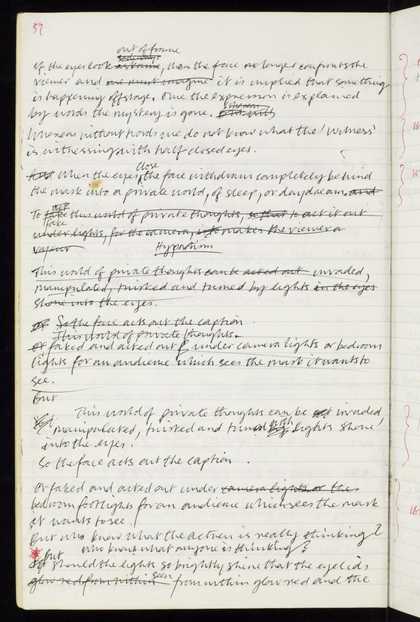 57
out of frame
sideways
If the eyes look askance, then the face no longer confronts the
viewer and one must imagine it is implied that something
is happening offstage. Once the expression is explained
by words the mystery is gone.
Whereas without words we do not know what the 'witness'
is witnessing with half closed eyes.
close
And when the eyes, the face withdraws completely behind
the mask into a private world, of sleep, or daydream and
To fake the world of private thoughts, so that to act it out
fake
under lights, for the camera, makes the viewer a
voyeur
Hypnotism
This world of private thoughts can be acted out invaded,
manipulated, twisted and turned by lights in the eyes
shone into the eyes.
or So the face acts out the caption.
This world of private thoughts
Or faked and acted out under camera lights or bedroom
lights for an audience which sees the mask it wants to
see.
But
This world of private thoughts can be invaded
manipulated, twisted and turned with lights shone
into the eyes.
So the face acts out the caption.
Or faked and acted out under camera lights or the
bedroom footlights for an audience which sees the mask
it wants to see
But who knows what the actress is really thinking?
but who knows what anyone is thinking?
Or should the lights so brightly shine that the eyelids
glow red from within seen from within glow red and the